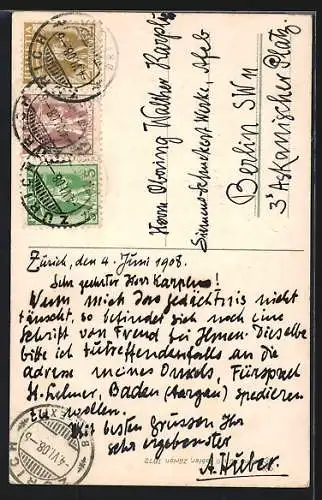 Zürich, den 4. Juni 1908.
Sehr geehrter Herr Karplus!
Wenn mich das Gedächtnis nicht
täuscht, so befindet sich noch eine
Schrift von Freud bei Ihnen. Dieselbe
bitte ich zutreffendenfalls an die
Adresse meines Onkels, Fürsprech
H. Lehner, Baden (Aargau) spedieren
zu wollen.
Mit besten Grüssen Ihr
sehr ergebenster
A. Huber.
Herrn Obering. Walther Karplus
Siemens-Schuckert Werke,
Berlin SW 11
3 Askanischer Platz.
HELVETIA
5
ZÜRICH
-4.VI.08.-5